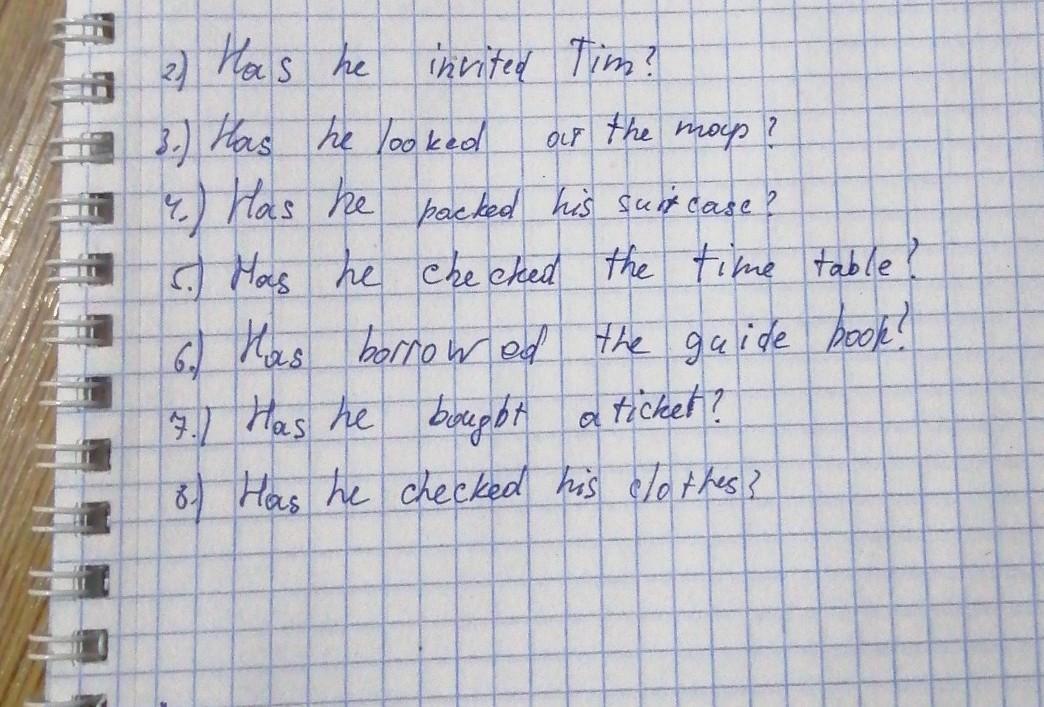 2) Has he invited Tim?
3.) Has he looked at the map?
4.) Has he packed his suitcase?
5.) Has he checked the time table?
6.) Has borrowed the guide book?
7.) Has he bought a ticket?
8.) Has he checked his clothes?